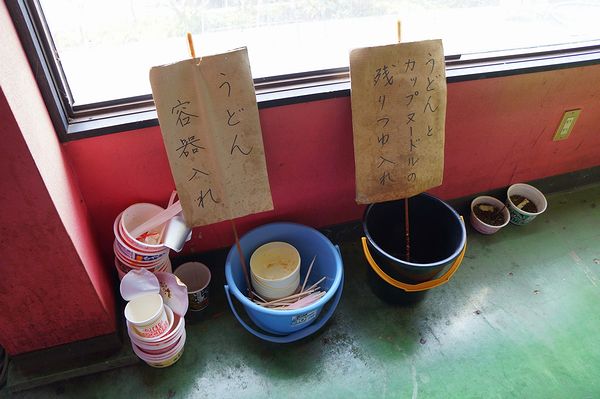 うどん
容器入れ
うどんと
カップヌードルの
残りつゆ入れ